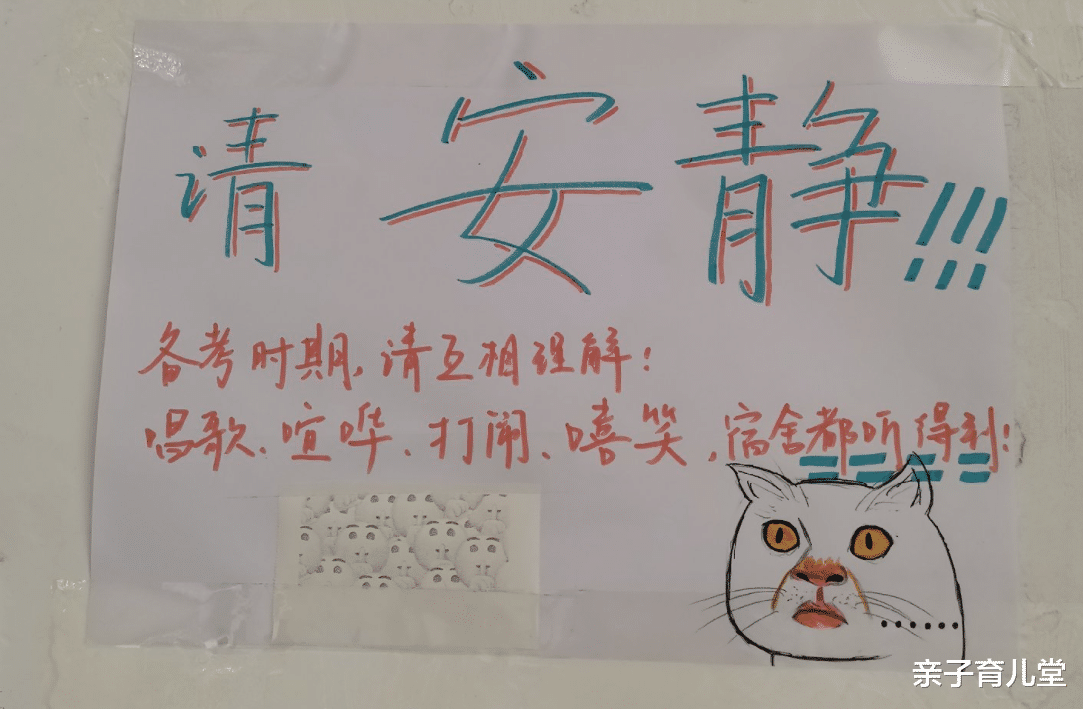 请安静!!!
备考时期,请互相理解!
唱歌、喧哗、打闹、嘻笑,宿舍都听得到!
亲子育儿堂